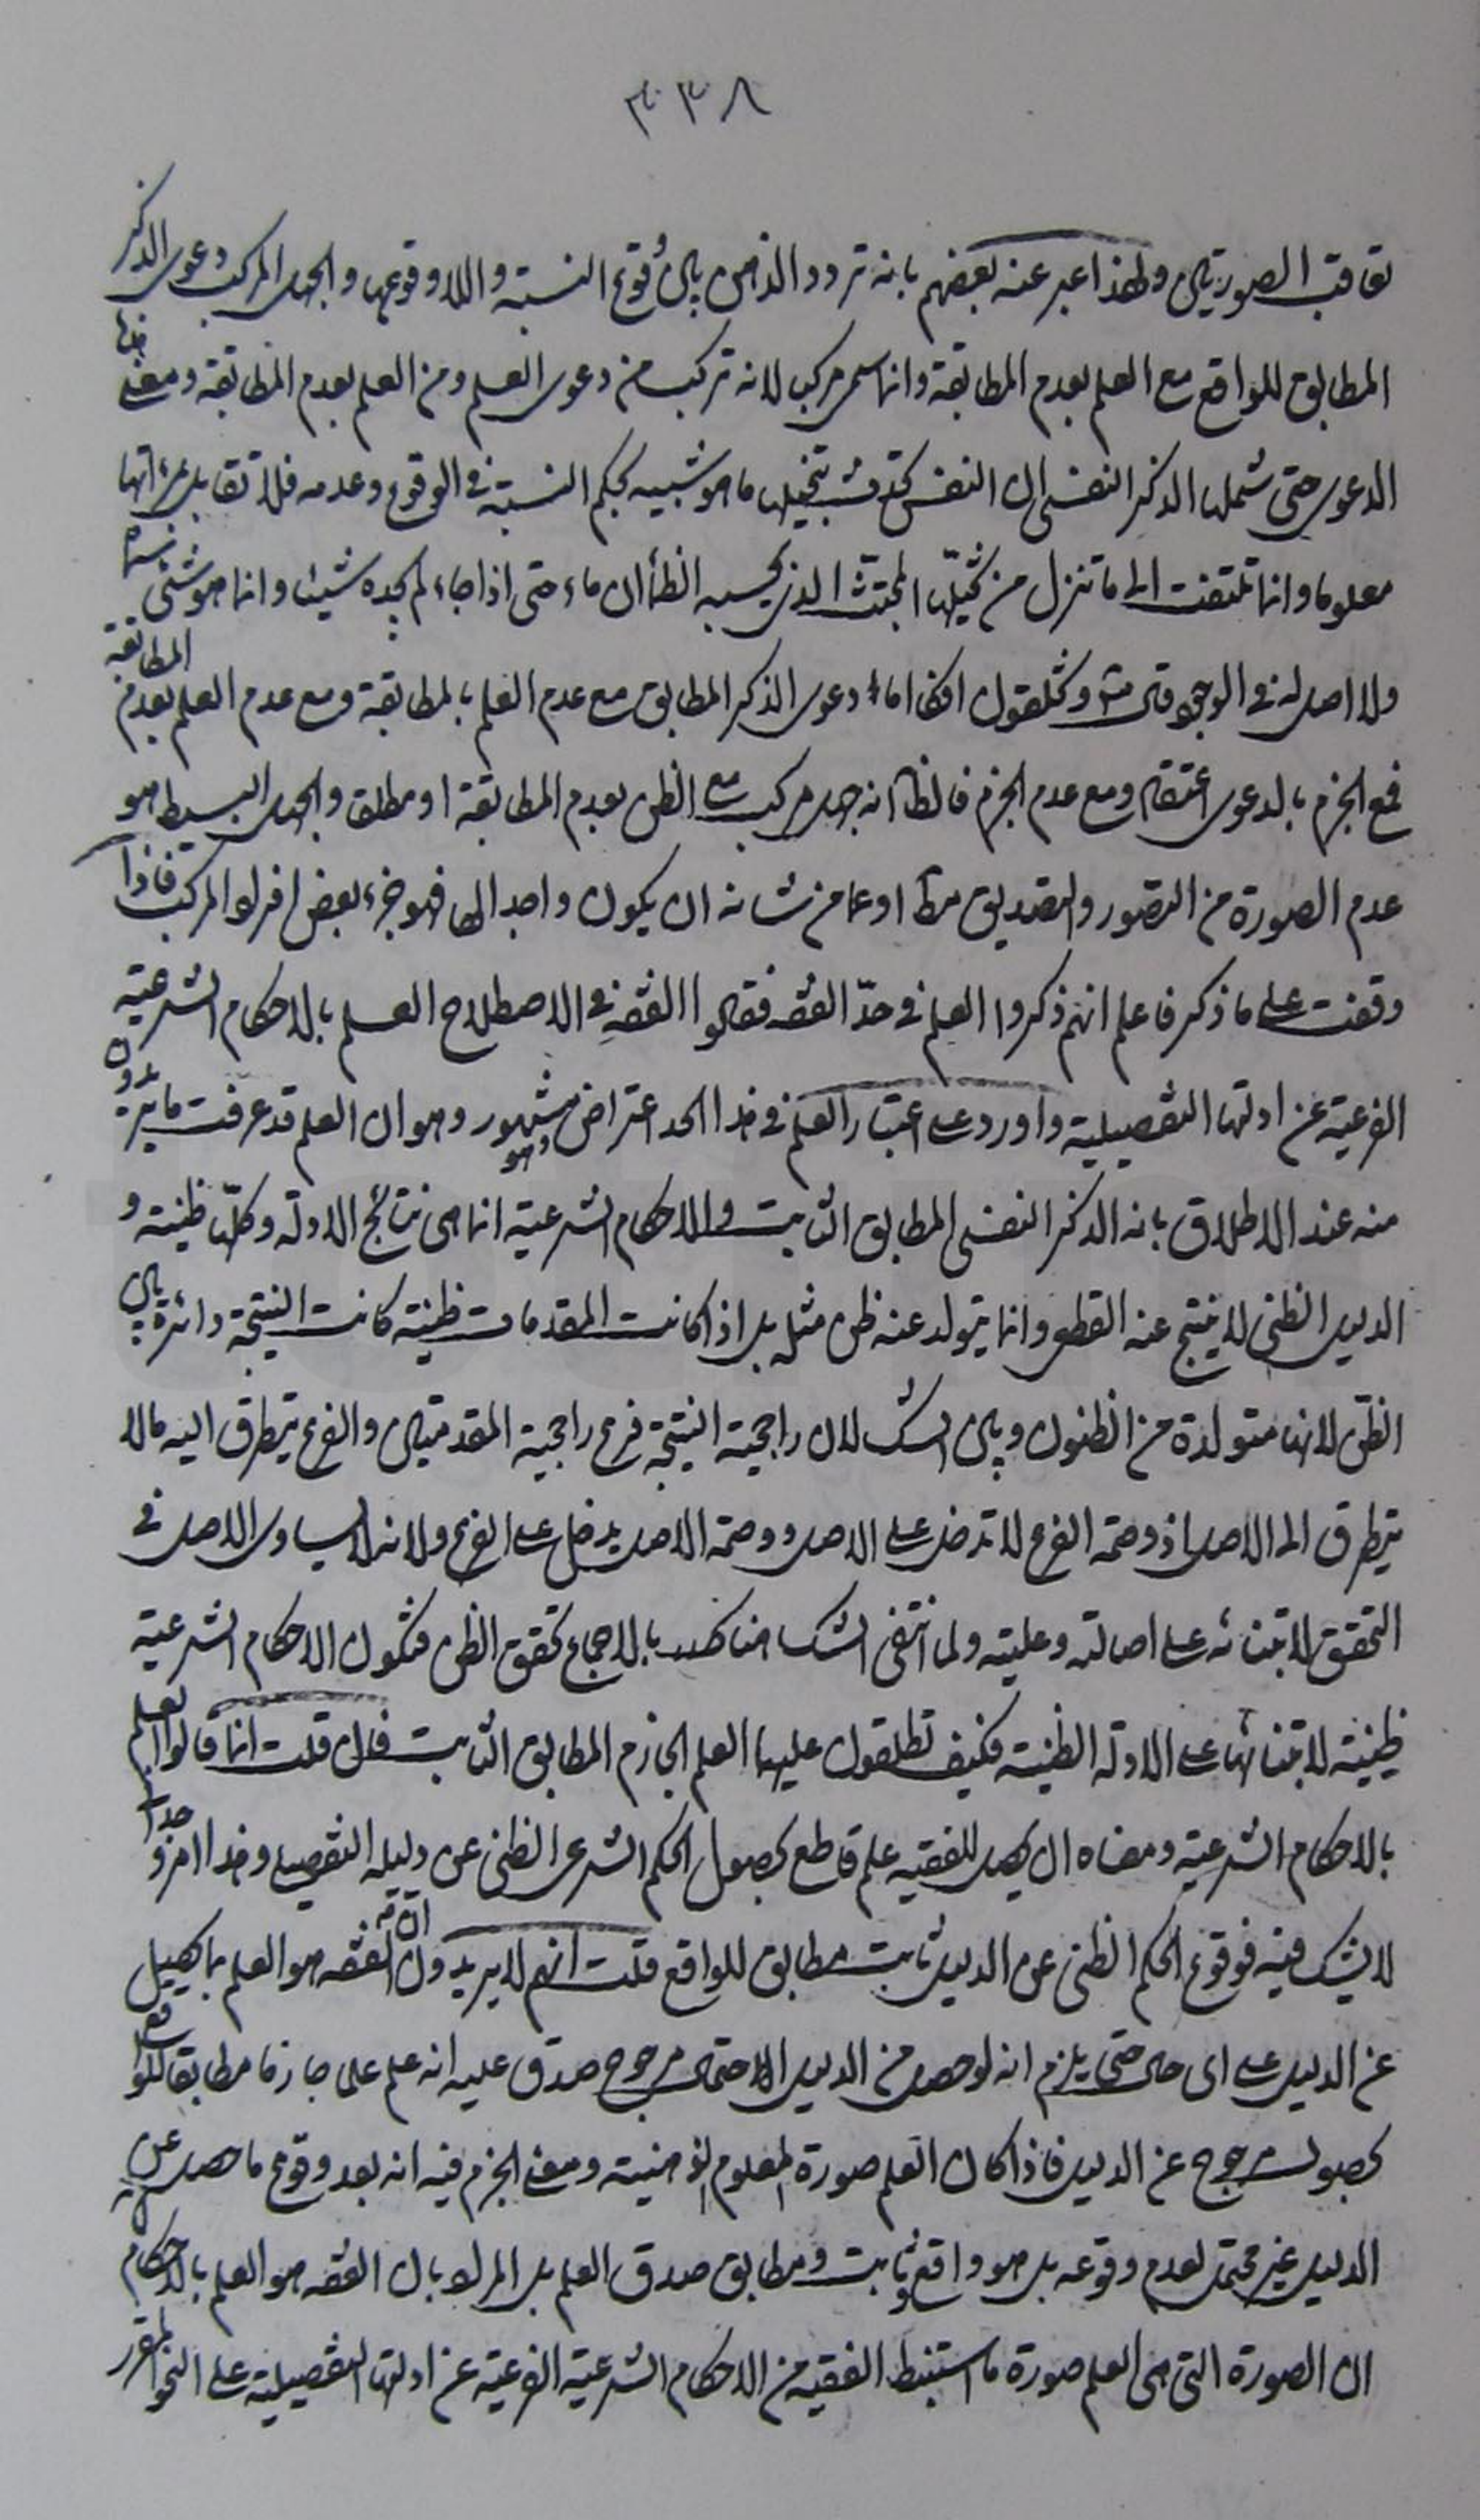 ٣٣٨
تعاقب الصورتين ولهذا عبر عنه بعضهم بانه تردد الذهن بين وقوع النسبة واللاوقوعها والجهل المركب دعوى الذكر
المطابق للواقع مع العلم بعدم المطابقة وانما سمى مركبا لانه تركب من دعوى العلم ومن العلم بعدم المطابقة ومعنى هذا
الدعوى حتى شملها الذكر النفسى ان النفس بتخيلها ما هو شبيه بحكم النسبة في الوقوع وعدمه فلا تقابل مرءاتها
معلوما وانما تلتفت الى ما تنزل من تخيلها المجتث الذى يحسبه الظمأن ماء حتى اذا جاءه لم يجده شيئا وانما هو شئ
ولا اصل له في الوجود قال تعالى وتخلقون افكا اما دعوى الذكر المطابق مع عدم العلم بالمطابقة ومع عدم العلم بعدم المطابقة
فمع الجزم بالدعوى ومع عدم الجزم فالظا انه جهل مركب مع الظن بعدم المطابقة او مطلق والجهل البسيط هو
عدم الصورة من التصور والتصديق مطا او عما من شانه ان يكون واجدا لها فهو جزء بعض افراد المركب فاذا
وقفت على ما ذكر فاعلم انهم ذكروا العلم في حدّ الفقه فقالوا الفقه في الاصطلاح العلم بالاحكام الشرعية
الفرعية عن ادلتها التفصيلية واورد على اعتبار العلم في هذا الحد اعتراض مشهور وهو ان العلم قد عرفت ما يريدون
منه عند الاطلاق بانه الذكر النفسى المطابق الثابت والاحكام الشرعية انما هى نتائج الادلة وكلها ظنية و
الدليل الظنى لا ينتج عنه القطع وانما يتولد عنه ظن مثله بل اذا كانت المقدمات ظنية كانت النتيجة دائرة بين
الظن لانها متولدة من الظنون وبين الشك لان راجحية النتيجة فرع راجحية المقدمتين والفرع يتطرق اليه ما لا
يتطرق الى الاصل اذ وصمة الفرع لا تدخل على الاصل ووصمة الاصل يدخل على الفرع ولانه لا يساوى الاصل في
التحقق لابتنائه على اصالته وعليته ولما انتفى الشك هنا بالاجماع تحقق الظن فتكون الاحكام الشرعية
ظنية لابتنائها على الادلة الظنية فكيف تطلقون عليها العلم الجازم المطابق الثابت فان قلت انما قالوا العلم
بالاحكام الشرعية ومعناه ان يحصل للفقيه علم قاطع بحصول الحكم الشرعى الظنى عن دليله التفصيلى وهذا امر
لا يشك فيه فوقوع الحكم الظنى عن الدليل ثابت مطابق للواقع قلت انهم لا يريدون ان الفقه هو العلم بما يحصل
عن الدليل على اى حال حتى يلزم انه لو حصل من الدليل الاحتمال مرجوح صدق عليه انه علم على جازما مطابقا للواقع
بحصول مرجوح عن الدليل فاذا كان العلم صورة المعلوم الذهنية ومعنى الجزم فيه انه بعد وقوع ما حصل عن
الدليل غير محتمل لعدم وقوعه بل هو واقع ثابت ومطابق صدق العلم بل المراد بان الفقه هو العلم بالاحكام
ان الصورة التى هى العلم صورة ما استنبط الفقيه من الاحكام الشرعية الفرعية عن ادلتها التفصيلية على النحو المقرر